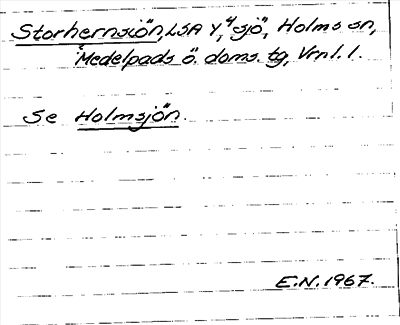 Storhernsjön, LSA Y, 4 sjö, Holms sn,
Medelpads ö. doms. tg, Vrnl. l.
Se Holmsjön.
E.N. 1967.